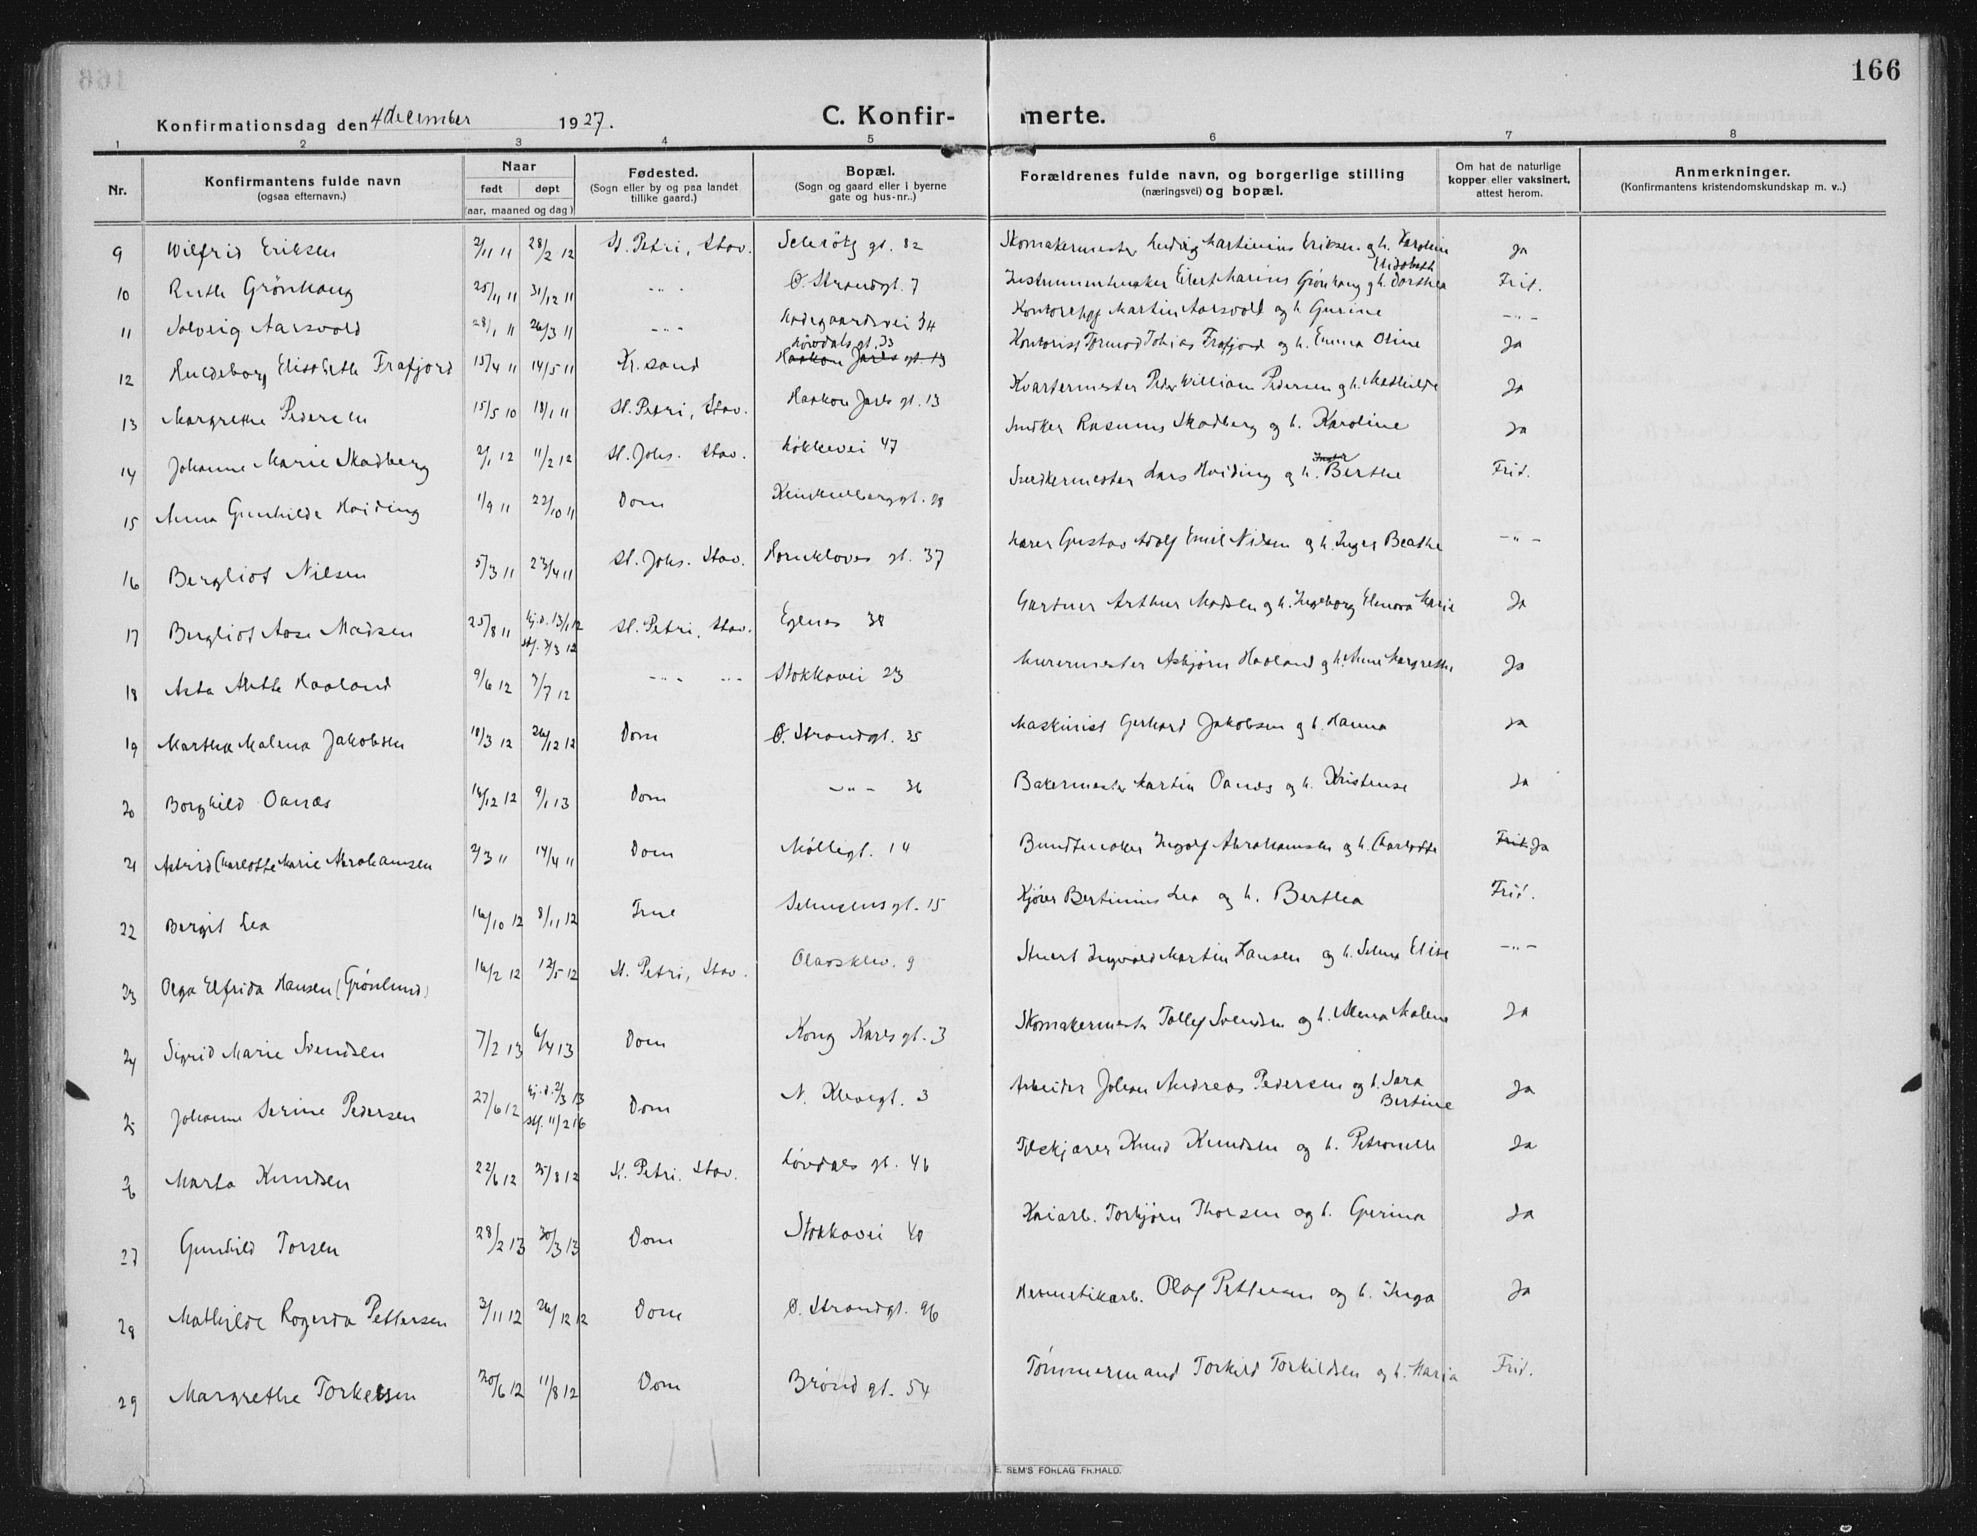 166
Konfirmationsdag den 4 december 1927.
C. Konfir- merte.
1 2 3 4 5 6 7 8
Nr.
Konfirmantens fulde navn
(ogsaa efternavn.)
Naar
født døpt
(aar, maaned og dag)
Fødested.
(Sogn eller by og paa landet
tillike gaard.)
Bopæl.
(Sogn og gaard eller i byerne
gate og hus-nr.)
Forældrenes fulde navn, og borgerlige stilling
(næringsvei) og bopæl.
Om hat de naturlige
kopper eller vaksinert,
attest herom.
Anmerkninger.
(Konfirmantens kristendomskundskap m. v..)
9 Wilfrid Eriksen 2/11 11 28/2 12 St. Petri, Stav. gt. 82 Skomakermester Ludvig Martinius Eriksen og h. Karoline Elisabeth Ja
10 Ruth Grønhaug 25/11 11 31/12 11 -"- Ø. Strandgt. 7 Instrumentmaker Eilert Marius Grønhaug og h. Dorthea Frit.
11 Solveig Aarsvold 28/1 11 26/3 11 -"- 34 Martin Aarsvold og h. Gurine -"-
12 Huldeborg Elisabeth Frafjord 15/4 11 14/5 11 Kr.sand Løvdals gt. 33 Haakon Jarls gt 13 Kontorist Tormod Tobias Frafjord og h. Emma Oline Ja
13 Margrethe Pedersen 15/5 10 18/1 11 St. Petri, Stav. Haakon Jarls gt. 13 Kvartermester Peder William Pedersen og h. Mathilde Ja
14 Johanne Marie Skadberg 2/1 12 11/2 12 St. Johs. Stav. Løkkevei 47 Snedker Rasmus Skadberg og h. Karoline Ja
15 Anna Gunhilde Hoiding 1/9 11 22/10 11 Dom 28 Snedkermester Lars Hoiding og h. Berthe Frit.
16 Bergliot Nilsen 5/3 11 23/4 11 St. Johs. Stav. Hornkloves gt. 37 Gustav Adolf Emil Nilsen og h. Inger Beathe -"-
17 Bergliot Aase Madsen 25/8 11 Hj.d. 13/1 12 St. 3/3 12 St. Petri, Stav. Egenes 38 Gartner Arthur Madsen og h. Ingeborg Elenora Marie Ja
18 Asta Anthe Haaland 9/6 12 7/7 12 -"- -"- Stokkavei 23 Murermester Asbjørn Haaland og h. Anne Margrethe Ja
19 Martha Malena Jakobsen 18/3 12 26/12 12 Dom Ø. Strandgt. 35 Maskinist Gerhard Jakobsen og h. Hanna Ja
20 Borghild Oanæs 16/12 12 9/1 13 Dom -"- 36 Bakermester Martin Oanæs og h. Kristense Ja
21 Astrid Charlotte Marie Abrahamsen 2/3 11 14/4 11 Dom Møllegt. 14 Bundtmaker Ingolf Abrahamsen og h. Charlotte Frit Ja
22 Bergit Lea 16/10 12 8/11 12 Time gt. 15 Kjører Bertinius Lea og h. Berthea Frit.
23 Olga Elfrida Hansen (Grønlund) 16/2 12 12/5 12 St. Petri, Stav. Olavsklev. 9 Stuert Ingvald Martin Hansen og h. Selma Elise -"-
24 Sigrid Marie Svendsen 7/2 13 6/4 13 Dom Kong Karls gt. 3 Skomakermester Tollef Svendsen og h. Alena Malene Ja
25 Johanne Serine Pedersen 27/6 12 Hj.d. 2/3 13 St. 11/2 16 Dom N. Klevegt. 3 Arbeider Johan Andreas Pedersen og h. Sara Bertine Ja
26 Marta Knudsen 22/6 12 25/8 12 St. Petri. Stav. Løvdals gt. 46 Knud Knudsen og h. Petronelle Ja
27 Gunhild Torsen 28/2 13 30/3 13 Dom Stokkavei 40 Kaiarb. Torbjørn Thorsen og h. Gurina Ja
28 Mathilde Rogerda Pettersen 3/11 12 26/12 12 Dom Ø. Strandgt. 96 Hermetikarb. Olaf Pettersen og h. Inga Ja
29 Margrethe Torkelsen 30/6 12 11/8 12 Dom Brønd gt. 54 Tømmermand Torkild Torkildsen og h. Maria Frit.
E. SEM'S FORLAG FR.HALD.